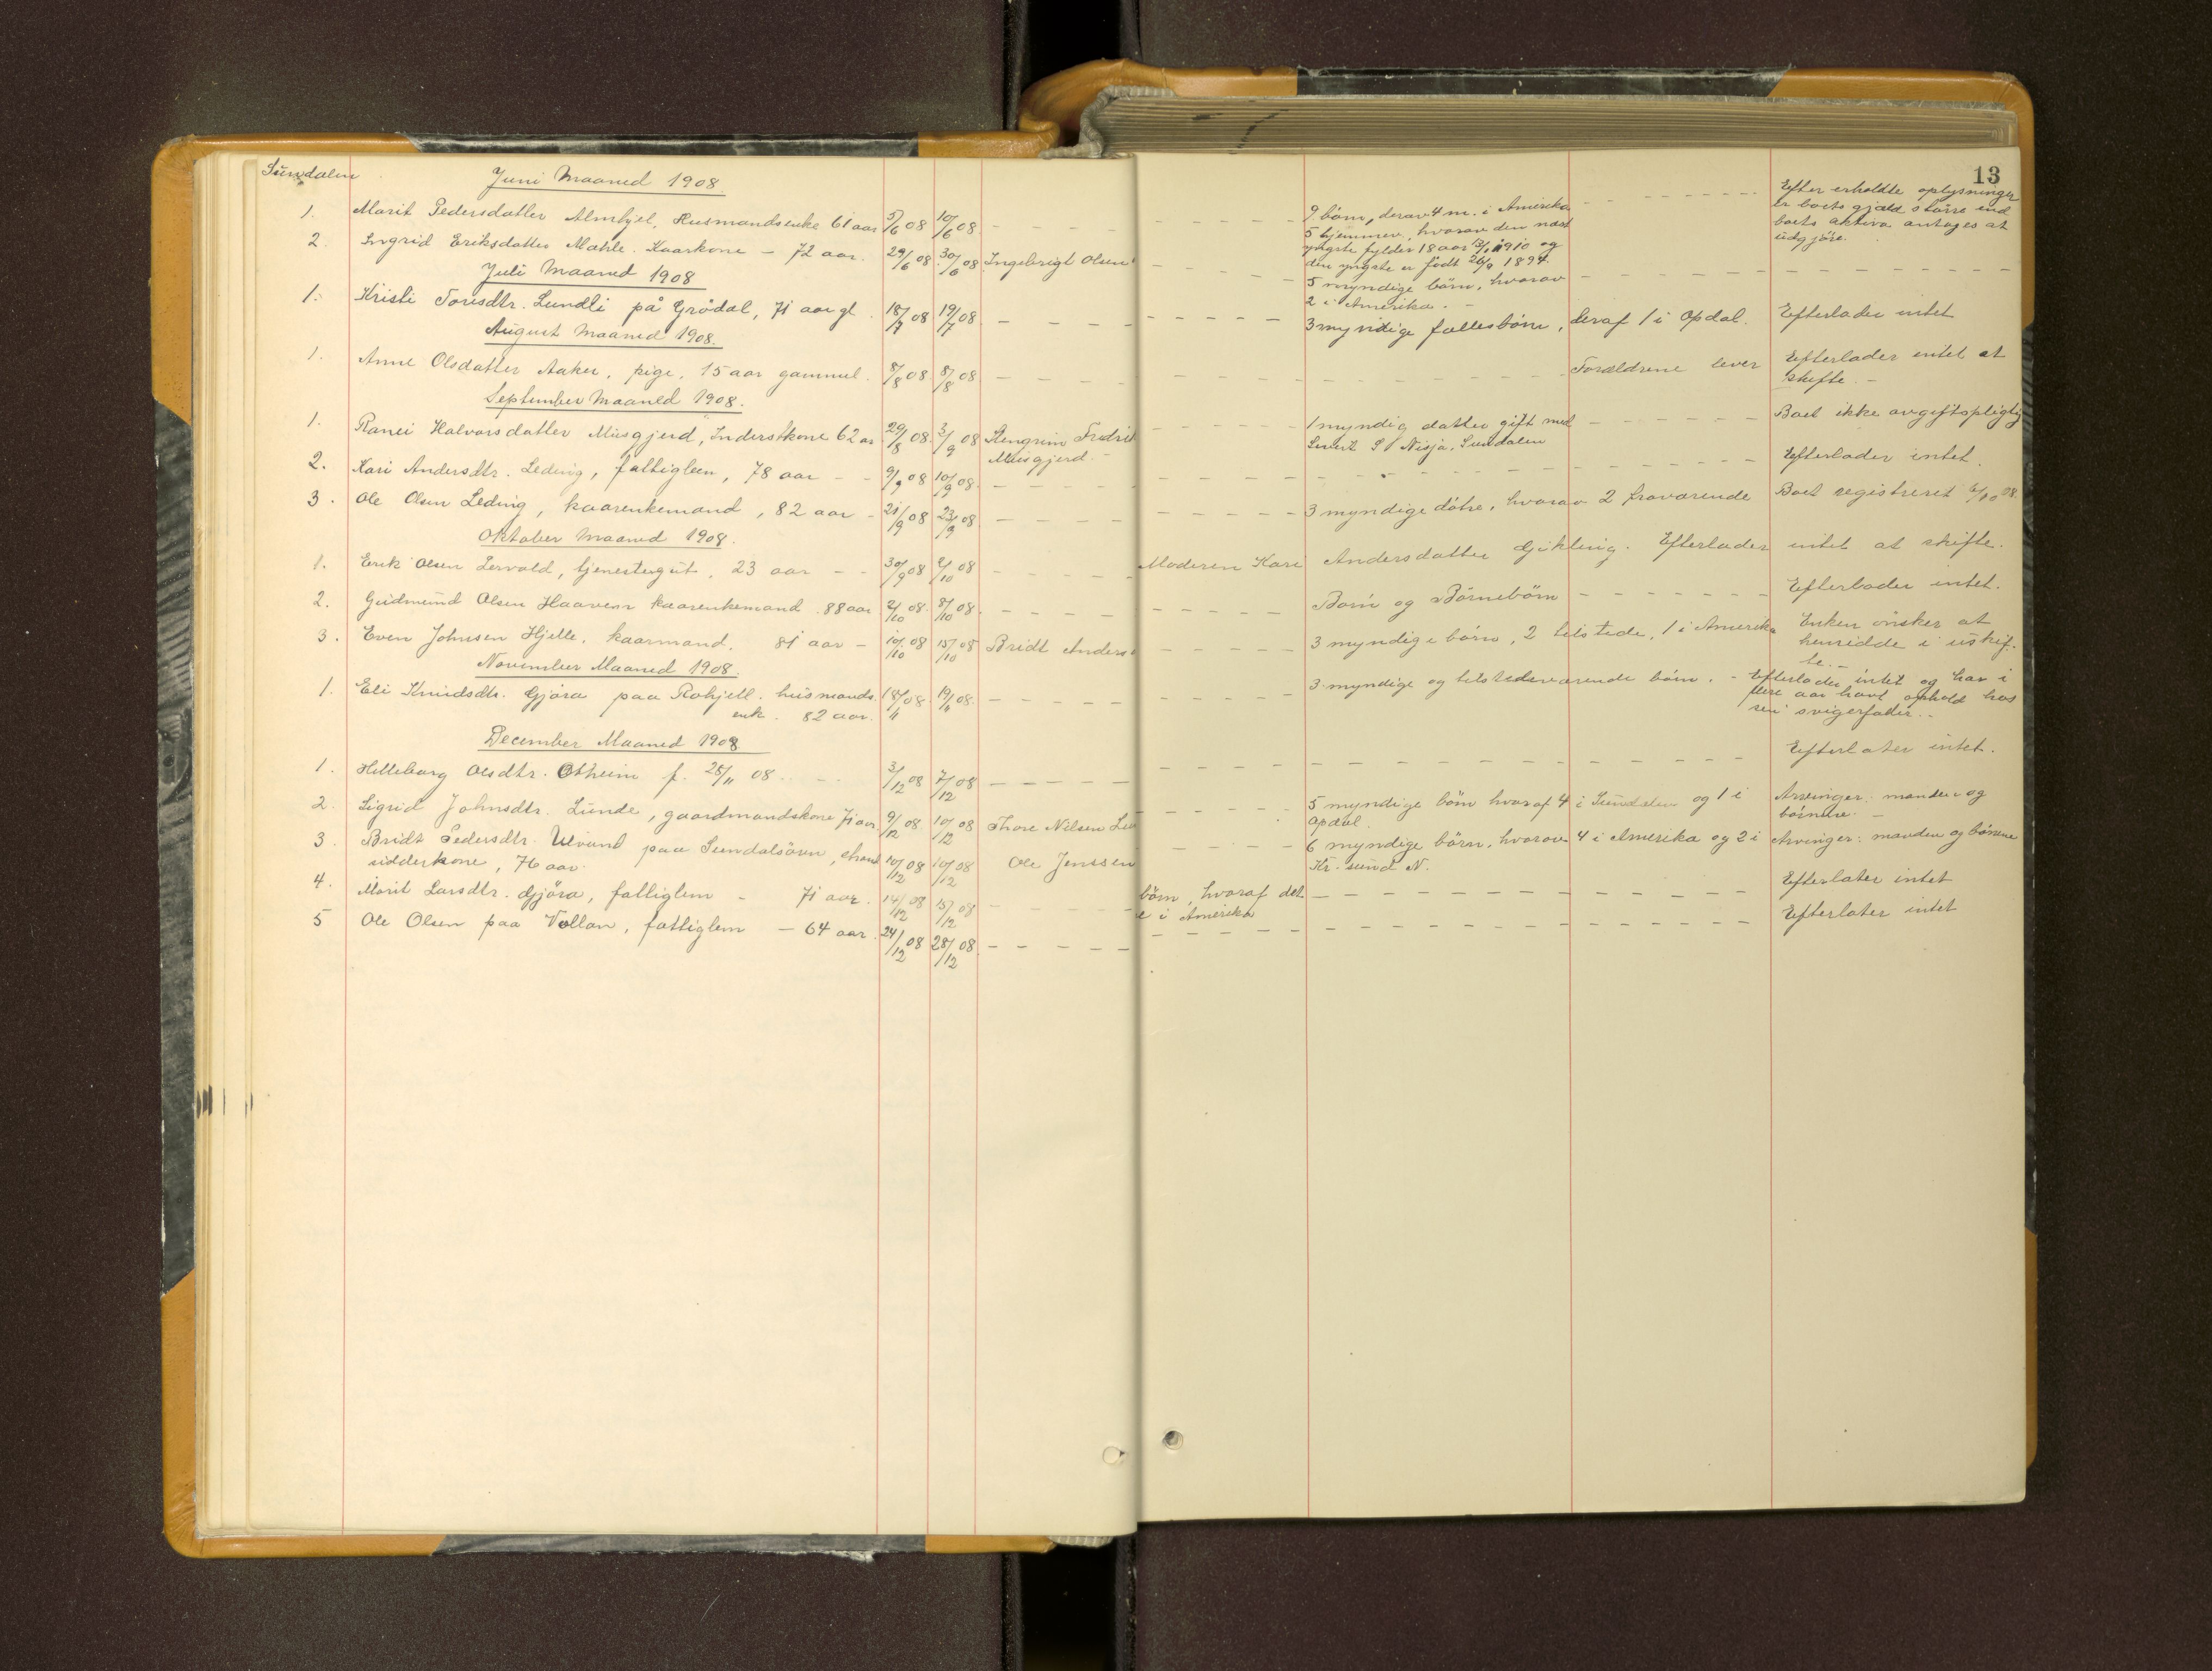 Sundalen
13
Juni Maaned 1908.
1. Marit Pedersdatter Almhjel, Husmandsenke 61 aar 5/6 08 10/6 08. – – – –
9 börn, derav 4 m. i Amerika
5 hjemmev. hvorav den næst
yngste fylder 18 aar 13/1 1910 og
den yngste er födt 26/9 1894.
Efter erholdte oplysninger
er boets gjæld större end
boets aktiva antages at
udgjöre.
2. Ingrid Eriksdatter Mæhle. Kaarkone – 72 aar. 29/6 08. 30/6 08. Ingebrigt Olsen
5 myndige börn, hvorav
2 i Amerika. –
Juli Maaned 1908
1. Kristi Toresdtr. Lundli på Grödal, 71 aar gl. 18/7 08 19/7 08. – – – – 3 myndige fællesbörn, deraf 1 i Opdal. Efterlader intet
August Maaned 1908.
1. Anne Olsdatter Aaker, pige, 15 aar gammel. 8/8 08 8/8 08 – – – – Forældrene lever Efterlader intet at
skifte. –
September Maaned 1908.
1. Ranei Halvorsdatter Musgjerd, Inderstkone 62 aar 29/8 08. 3/9 08 Stengrim Fredrik
Musgjerd. –
1 myndig datter gift med
Sivert S Nisja, Sundalen
Boet ikke avgiftspligtig
2. Kari Andersdtr. Leding, fattiglem, 78 aar – – 9/9 08 10/9 08. – – – – Efterlader intet.
3. Ole Olsen Leding, kaarenkemand, 82 aar – 21/9 08 23/9 08 – – – – 3 myndige dötre, hvorav 2 fraværende Boet registreret 6/10 08.
Oktober Maaned 1908.
1. Erik Olsen Lervold, tjenestegut, 23 aar – – 30/9 08 2/10 08 – – – – Moderen Kari Andersdatter Gjikling. Efterlader intet at skifte.
2. Gudmund Olsen Haaven kaarenkemand. 88 aar 2/10 08. 8/10 08. – – – – Børn og Börnebörn – – – – Efterlader intet.
3. Even Johnsen Hjelle, kaarmand. 81 aar – 10/10 08 15/10 08 Bridt Anders
3 myndige börn, 2 tilstede, 1 i Amerika Enken önsker at
hensidde i uskif-
te. –
November Maaned 1908.
1. Eli Knudsdtr. Gjöra paa Rohjell. husmands
enk. 82 aar. 18/11 08 19/11 08. – – – –
3 myndige og tilstedeværende börn. – Efterlader intet og har i
flere aar havt ophold hos
sin svigerfader. –
December Maaned 1908
1. Hilleborg Olsdtr. Otheim f. 25/11 08 3/12 08 7/12 08 – – – – Efterlater intet.
2. Sigrid Johnsdtr. Lunde, gaardmandskone 71 aar. 9/12 08 10/12 08 Thore Nilsen
5 myndige börn hvoraf 4 i Sundalen og 1 i
Opdal.
Arvinger: manden og
börnene. –
3. Bridt Pedersdtr. Ulvund paa Sundalsören,
sidderkone, 76 aar. 10/12 08 10/12 08 Ole Jenssen
6 myndige börn, hvorav 4 i Amerika og 2 i
Kr.sund N.
Arvinger: manden og börnene
4. Marit Larsdtr. Gjöra, fattiglem – 71 aar. 14/12 08 15/12 08 – – –
börn, hvoraf det
e i Amerika
Efterlater intet
5 Ole Olsen paa Vollan, fattiglem – 64 aar. 24/12 08 28/12 08 – – – – Efterlater intet